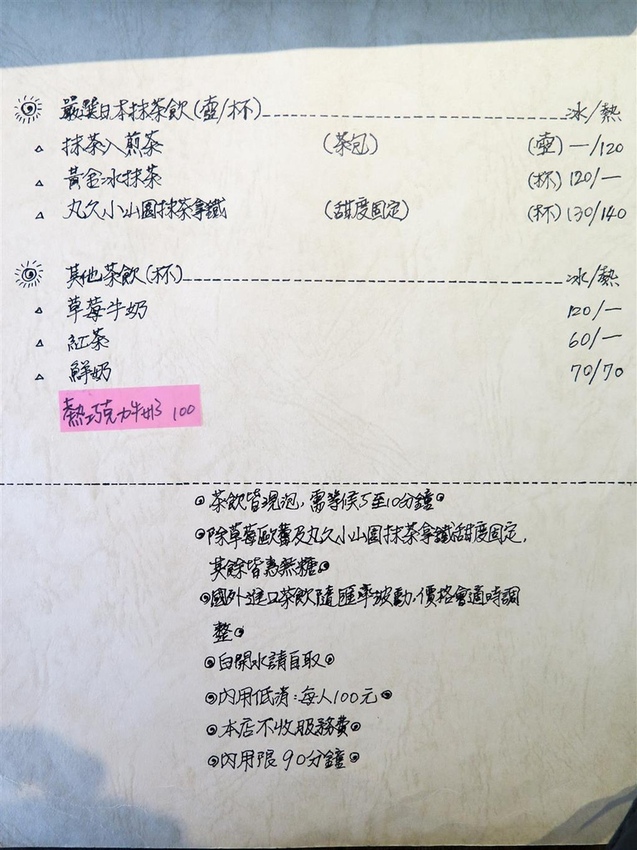 嚴選日本抹茶飲(壺/杯) 冰/熱
抹茶入煎茶 (茶包) (壺) 一/120
黃金冰抹茶 (杯) 120/一
丸久小山園抹茶拿鐵 (甜度固定) (杯) 130/140
其他茶飲(杯) 冰/熱
草莓牛奶 120/一
紅茶 60/一
鮮奶 70/70
熱巧克力牛奶 100
茶飲皆現泡,需等侯5至10分鐘
除草莓歐蕾及丸久小山園抹茶拿鐵甜度固定,
其餘皆為無糖
國外進口茶飲隨匯率波動,價格會適時調
整
白開水請自取
內用低消:每人100元
本店不收服務費
內用限90分鐘